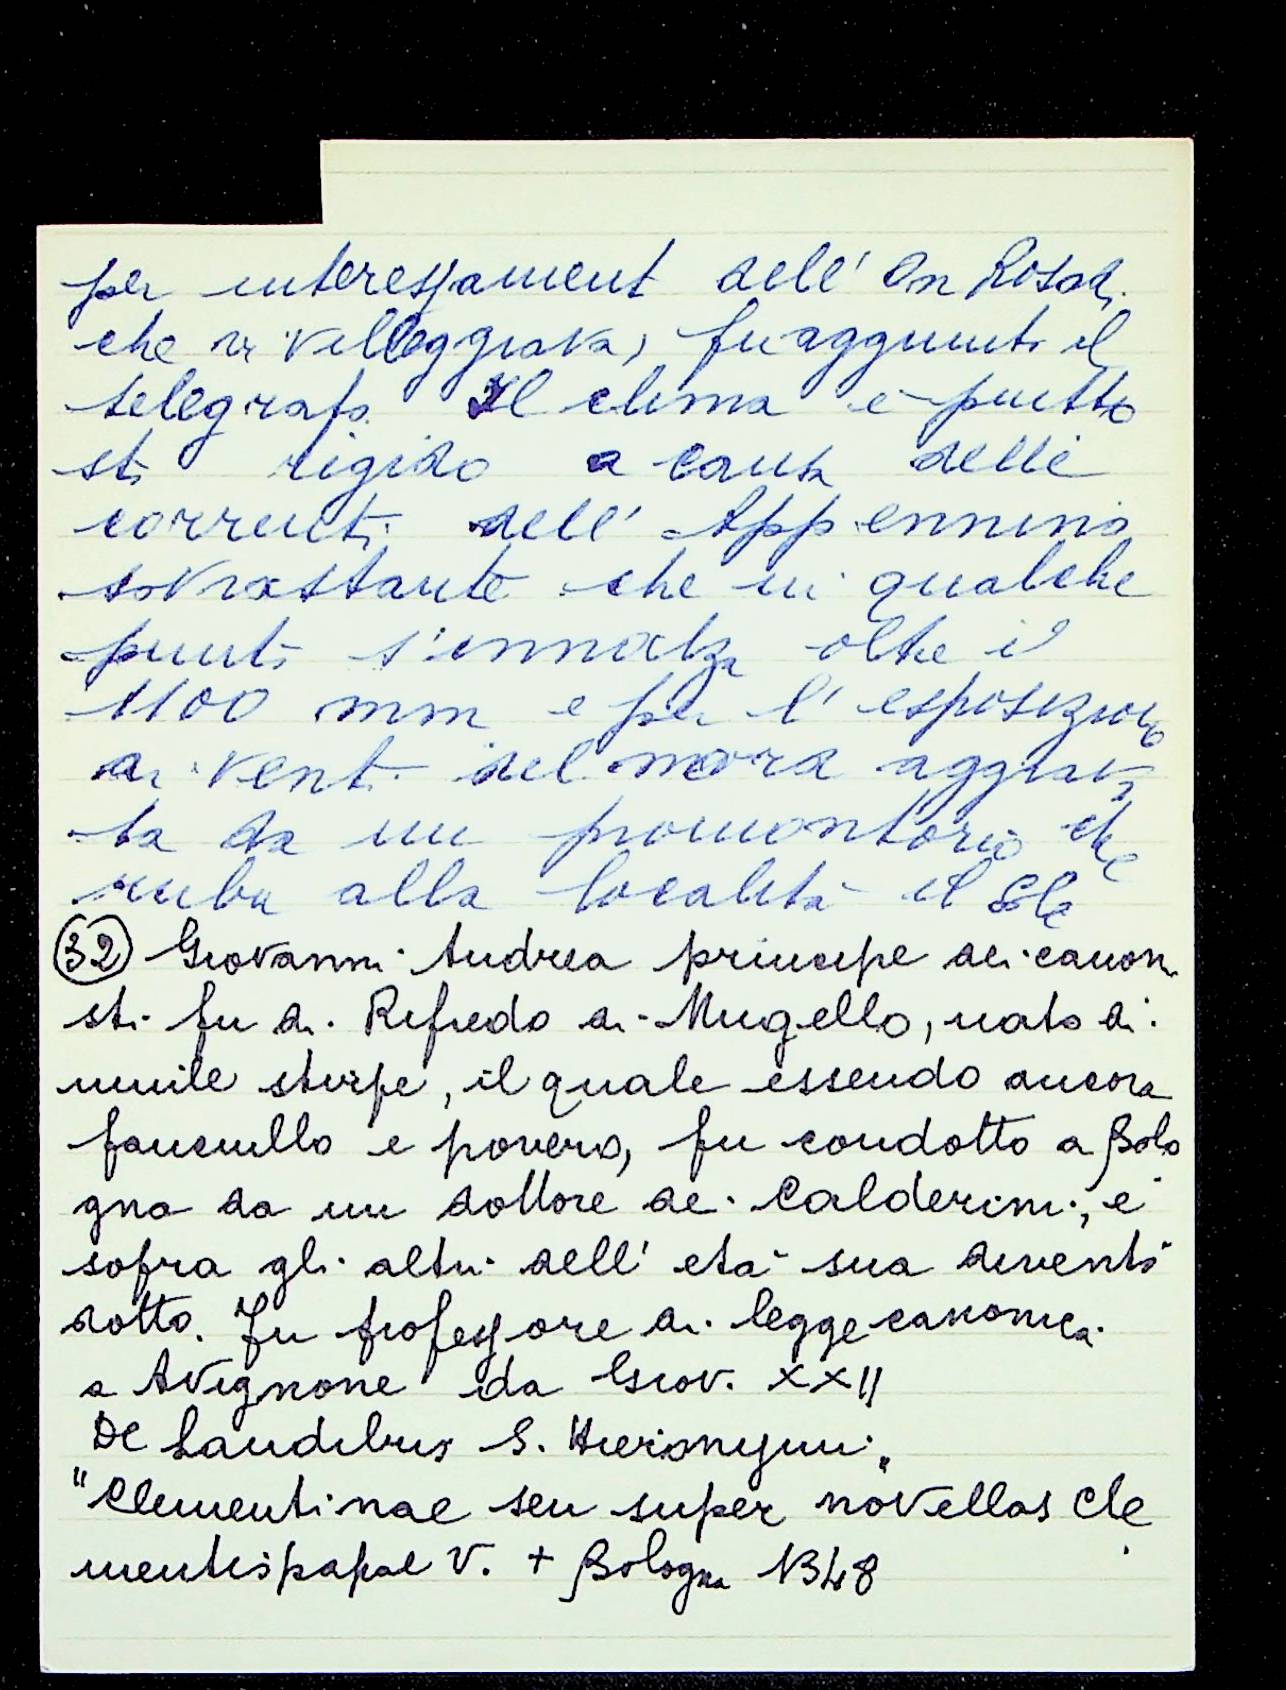 per interessament dell' On Rosadi
che vi villeggiava, fu aggiunto il
telegrafo. Il clima è piutto
sto rigido a causa delle
correnti dell' Appennino
sovrastante che in qualche
punto s'innalza oltre i
1100 mm e per l'esposizione
ai venti del mora aggrava
ta da un promontorio che
ruba alla località il Sole
(32) Giovanni Andrea principe dei canoni
sti fu di Rifredo di Mugello, nato di
umile stirpe, il quale essendo ancora
fanciullo e povero, fu condotto a Bolo
gna da un dottore de' Calderini, e
sopra gli altri dell' età sua diventò
dotto. Fu professore di legge canonica
a Avignone da Giov. XXII
De Laudibus S. Hieronymi
"Clementinae seu super novellas Cle
mentis papae V. + Bologna 1348